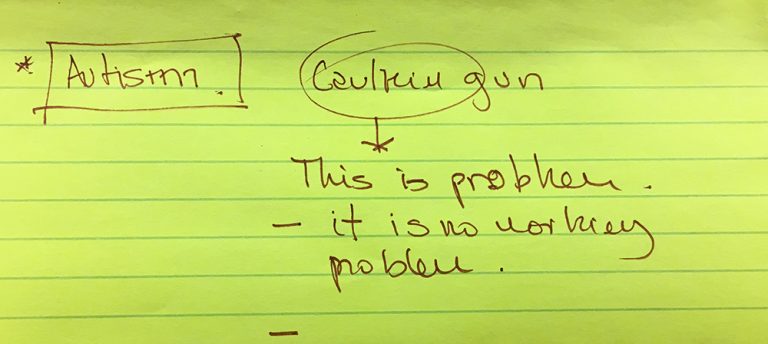 * Autism. Caulkin gun
This is problem.
- it is no working
problem.
-